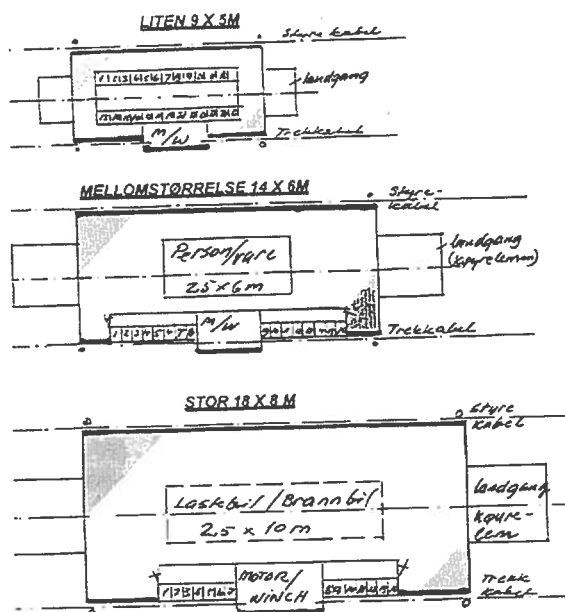 LITEN 9 X 5M
Styre kabel
landgang
M/W
Trekkabel
MELLOMSTØRRELSE 14 X 6M
Styre-
kabel
Person/vare
2.5 x 6 m
landgang
M/W
1 2 3 4 5 6 7 8
Trekkabel
STOR 18 X 8 M
Styre
Kabel
Lastebil/Brannbil
2.5 x 10 m
landgang
Kjøre-
lem
MOTOR/
WINCH
Trekk
Kabel